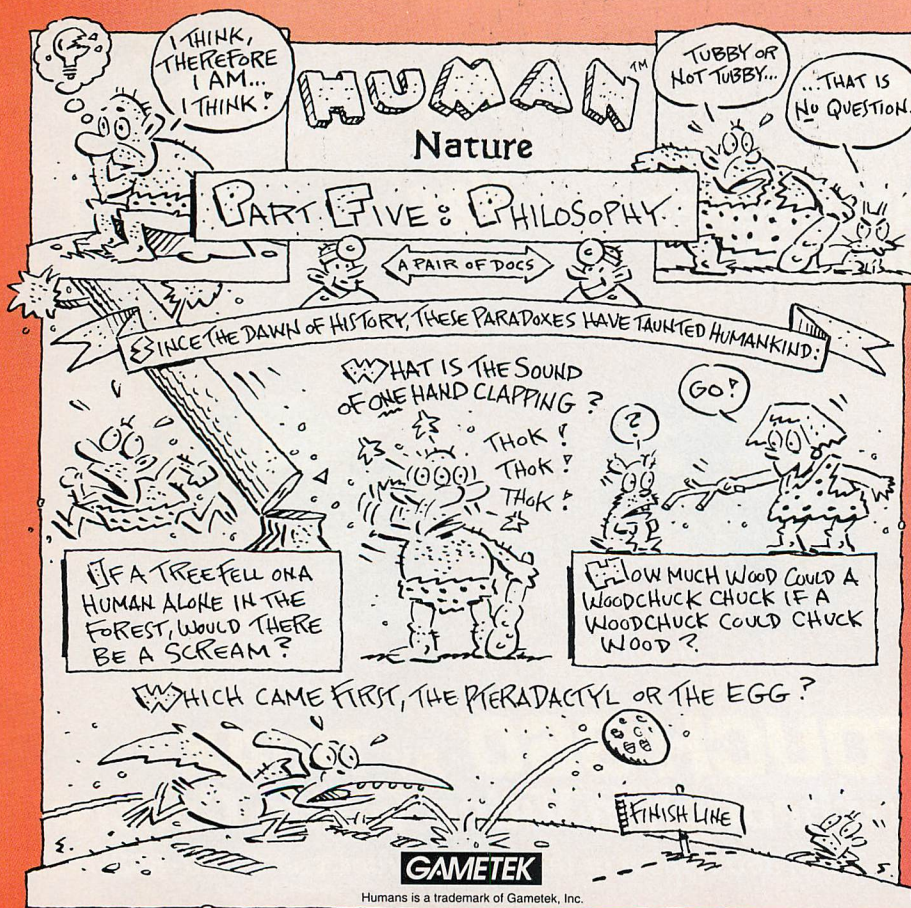 I THINK,
THEREFORE
I AM...
I THINK!
HUMAN™
Nature
TUBBY OR
NOT TUBBY...
...THAT IS
NO QUESTION.
PART FIVE: PHILOSOPHY
A PAIR OF DOCS
SINCE THE DAWN OF HISTORY, THESE PARADOXES HAVE TAUNTED HUMANKIND:
WHAT IS THE SOUND
OF ONE HAND CLAPPING?
THOK!
THOK!
THOK!
?
GO!
IF A TREE FELL ON A
HUMAN ALONE IN THE
FOREST, WOULD THERE
BE A SCREAM?
HOW MUCH WOOD COULD A
WOODCHUCK CHUCK IF A
WOODCHUCK COULD CHUCK
WOOD?
WHICH CAME FIRST, THE PTERADACTYL OR THE EGG?
FINISH LINE
GAMETEK
Humans is a trademark of Gametek, Inc.